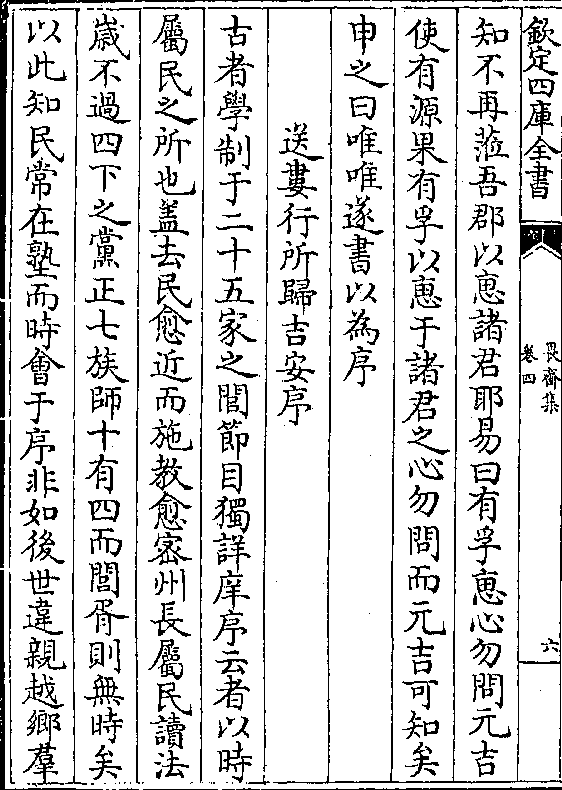 欽定四庫全書
畏齋集
卷四
六
知不再蒞吾郡以惠諸君耶易曰有孚惠心勿問元吉
使有源果有孚以惠于諸君之心勿問而元吉可知矣
申之曰唯唯遂書以為序
送婁行所歸吉安序
古者學制于二十五家之閭節目獨詳庠序云者以時
屬民之所也盖去民愈近而施教愈宻州長屬民讀法
嵗不過四下之黨正七族師十有四而閭胥則無時矣
以此知民常在塾而時會于序非如後世違親越鄉羣